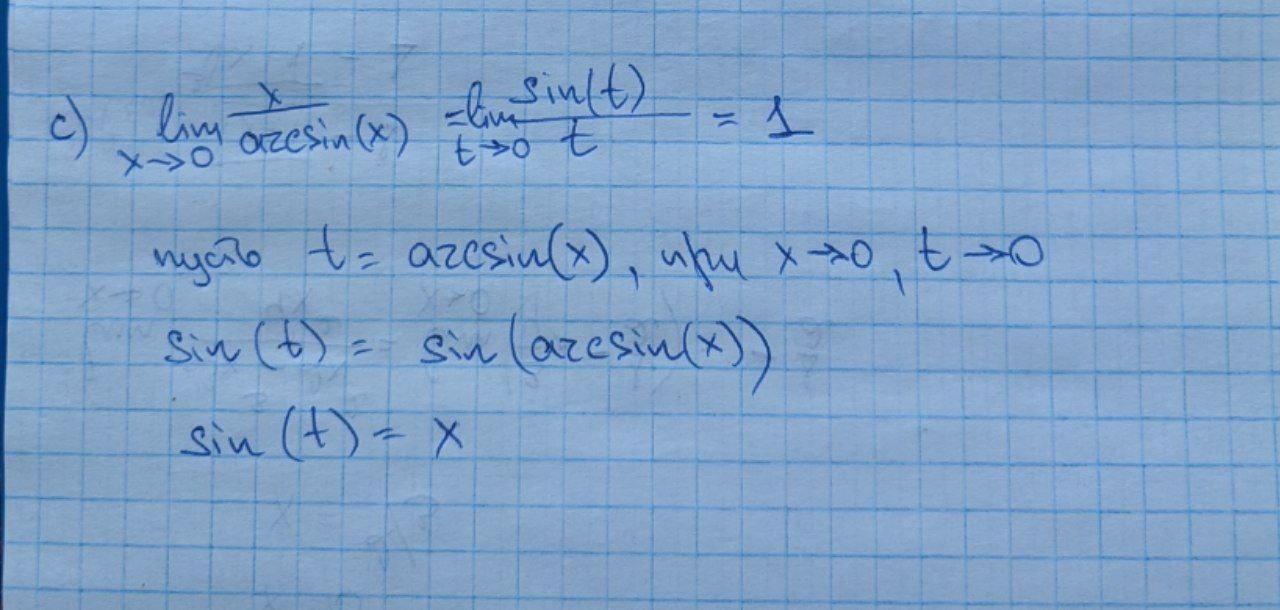 c) lim x→0 x/arcsin(x) = lim t→0 sin(t)/t = 1
пусть t = arcsin(x), при x→0, t→0
sin(t) = sin(arcsin(x))
sin(t) = x